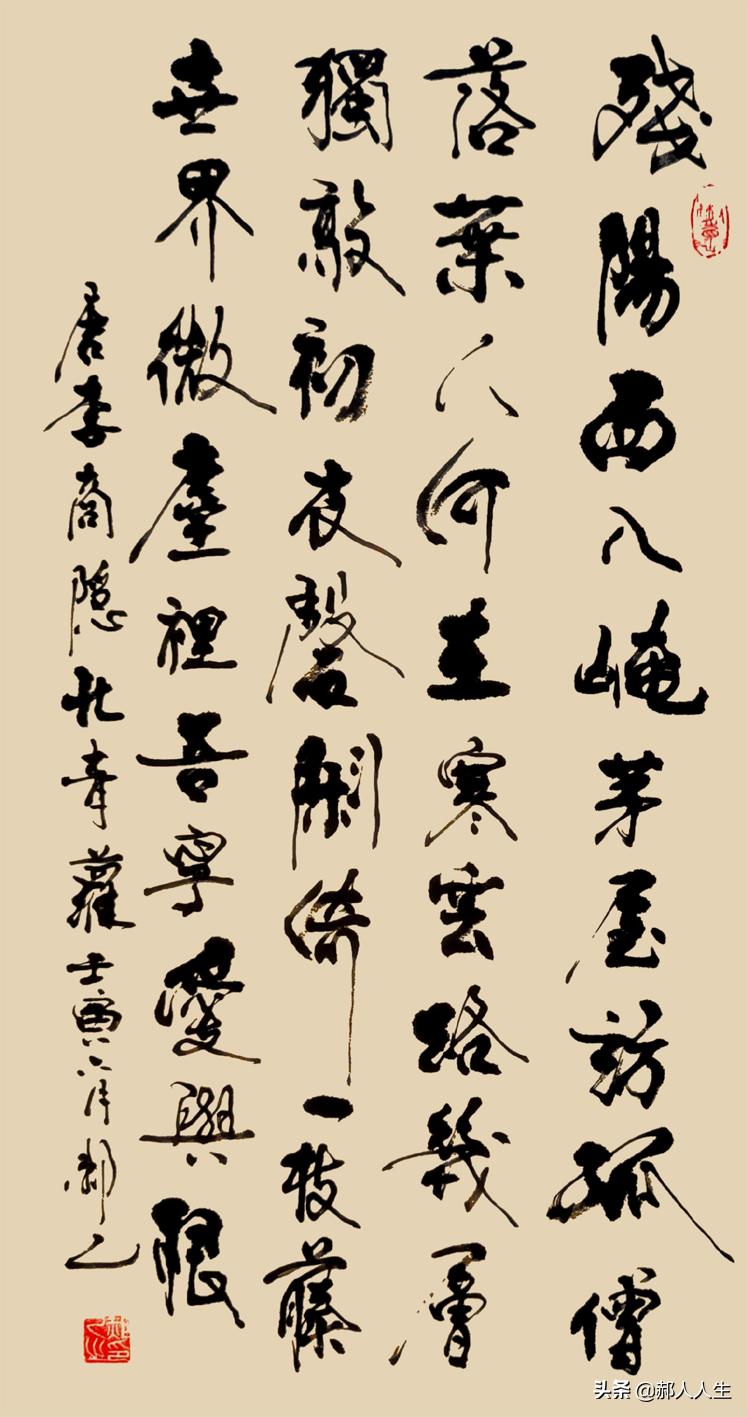 殘陽西入崦茅屋訪孤僧
落葉人何在寒雲路幾層
獨敲初夜磬閑倚一枝藤
世界微塵裡吾寧愛與恨
唐李商隱北青蘿壬寅六月郝之
头条 @郝人人生